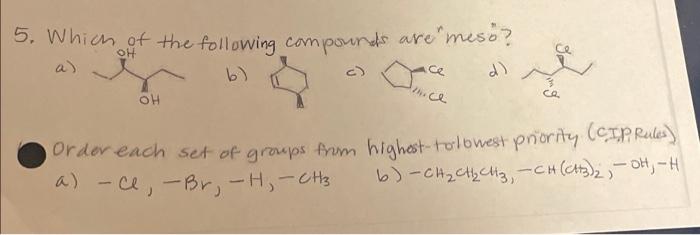 5. Which of the following compounds are "meso"?
a) OH OH b) c) Cl Cl d) Cl Cl
Order each set of groups from highest-to lowest priority (C.I.P. Rules)
a) -Cl, -Br, -H, -CH3 b) -CH2CH2CH3, -CH(CH3)2, -OH, -H